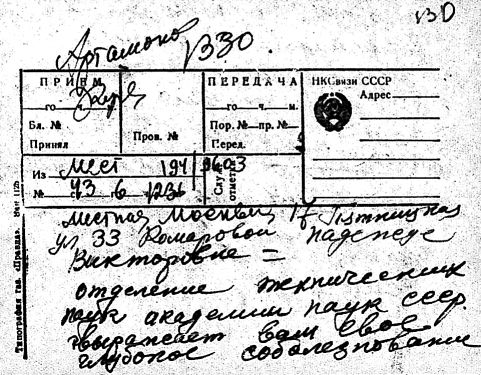 130
Артамонов
1330.
ПРИЕМ
ПЕРЕДАЧА
НКСвязи СССР
Адрес
го ч. м.
го ч. м.
Бл. №
Пров. №
Пор. № пр. №
Принял
Перед.
Из мест 194 9603
Служ. отметки
№ 43 6 1236
Типография газ. «Правда».
местная Москва 17 Пятницкая
ул 33 Комаровой надежде
Викторовне =
отделение технических
наук академии наук ссср.
выражает вам свое
глубокое соболезнование